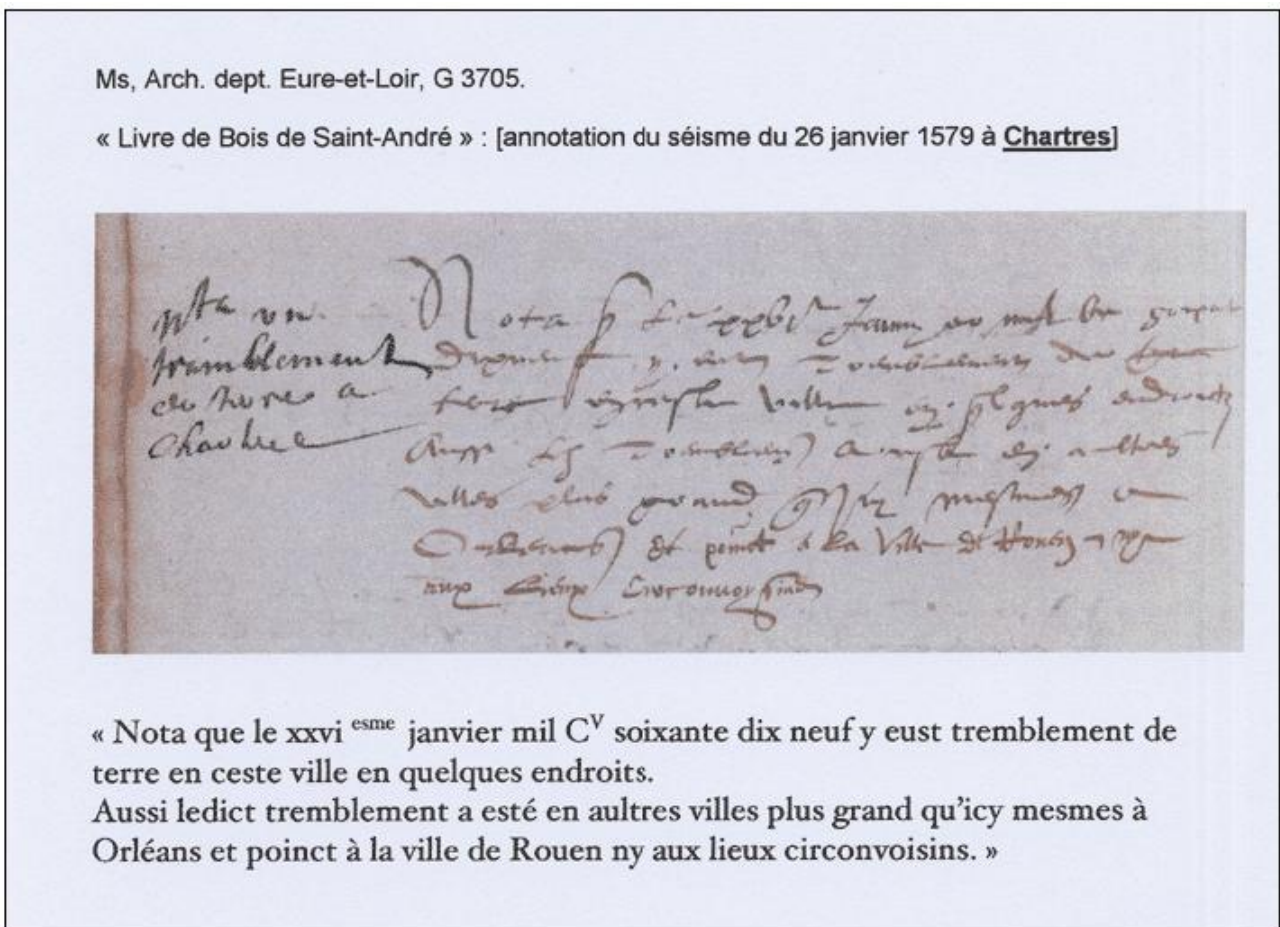 Ms, Arch. dept. Eure-et-Loir, G 3705.
« Livre de Bois de Saint-André » : [annotation du séisme du 26 janvier 1579 à Chartres]
nta un
tremblement
de terre a
Chartres
Nota q le xxvie Janv
tremblement de
terre en ceste ville en qlques endroitz
Aussi led tremblement a esté en aultres
villes plus grand qu'icy mesmes a
Orleans et poinct a la ville de Rouen ny
aux lieux circonvoysins
« Nota que le xxvi esme janvier mil CV soixante dix neuf y eust tremblement de
terre en ceste ville en quelques endroits.
Aussi ledict tremblement a esté en aultres villes plus grand qu'icy mesmes à
Orléans et poinct à la ville de Rouen ny aux lieux circonvoisins. »